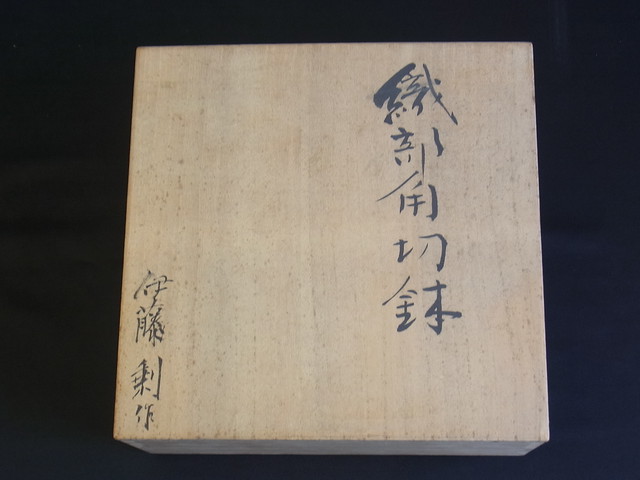 織部角切鉢
伊藤剰作